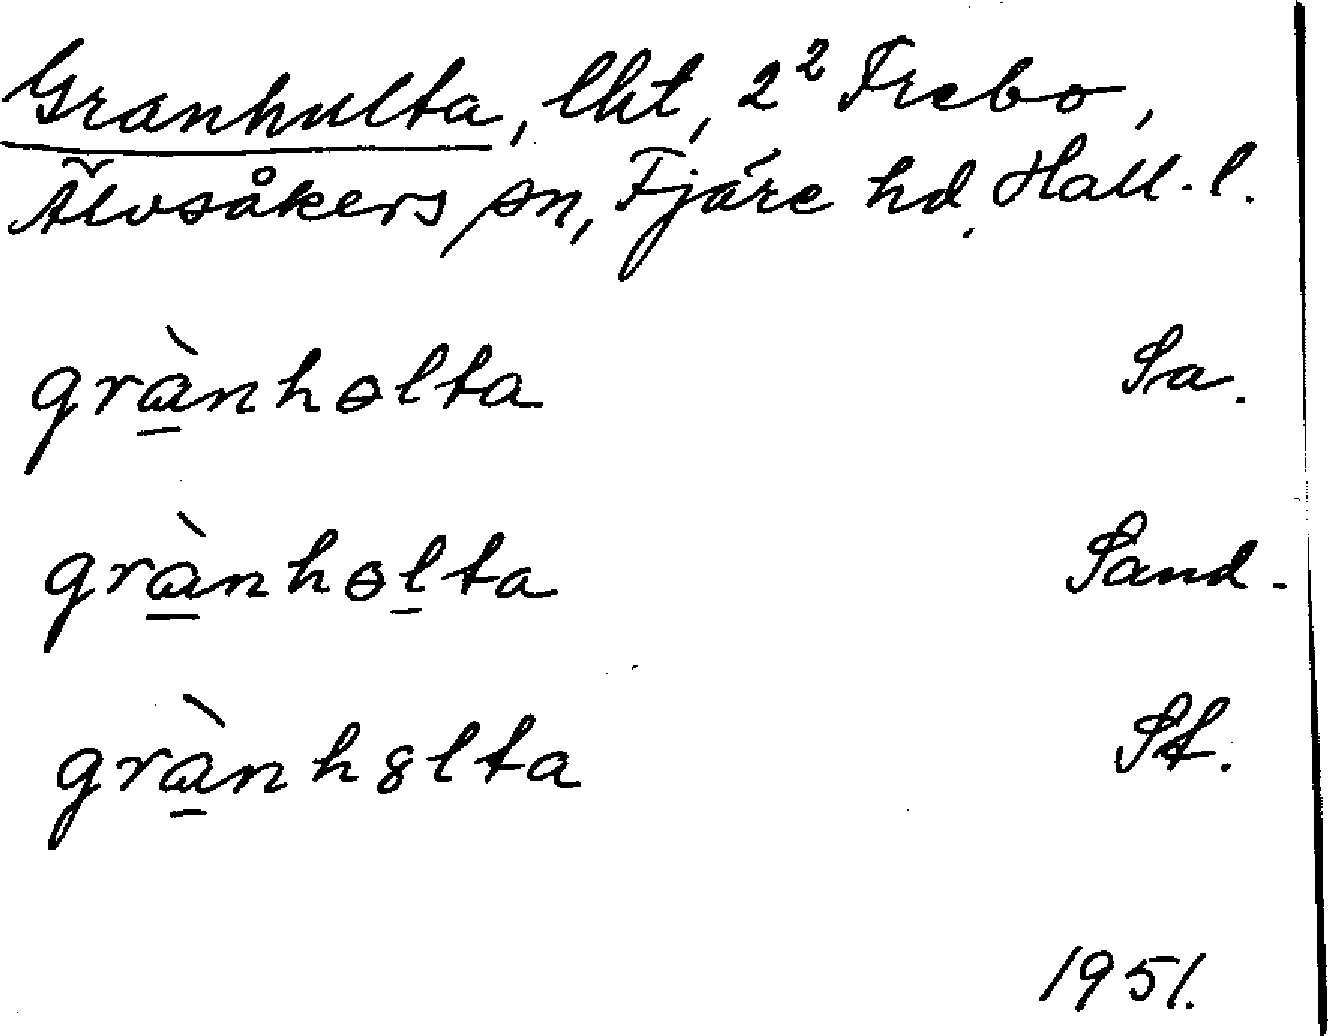 Granhulta, lht, 2² Trebo,
Älvsåkers sn, Fjäre hd. Hall. l.
grà̲nhɵlta Sa.
grà̲nhɵl̲ta Sand.
grà̲nh8lta St.
1951.